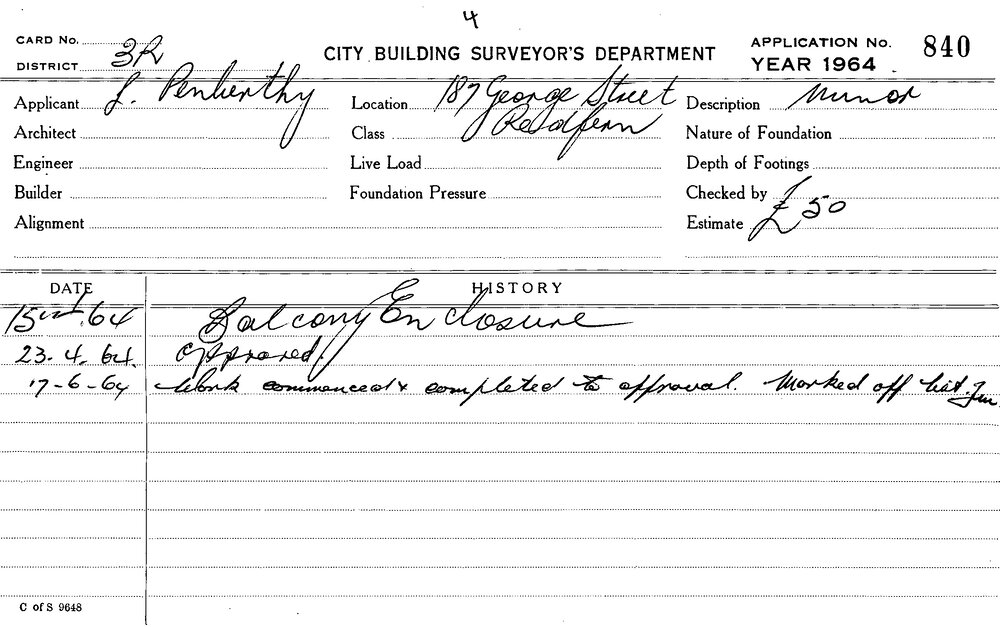 4
CARD No.
DISTRICT 3R
CITY BUILDING SURVEYOR'S DEPARTMENT
APPLICATION No. 840
YEAR 1964
Applicant J. Penberthy
Location 187 George Street
Redfern
Description Minor
Architect
Class
Nature of Foundation
Engineer
Live Load
Depth of Footings
Builder
Foundation Pressure
Checked by
Alignment
Estimate £50
DATE HISTORY
.64 Balcony Enclosure
23.4.64. Approved.
17-6-64 Work commenced & completed to approval. Marked off list.
C of S 9648